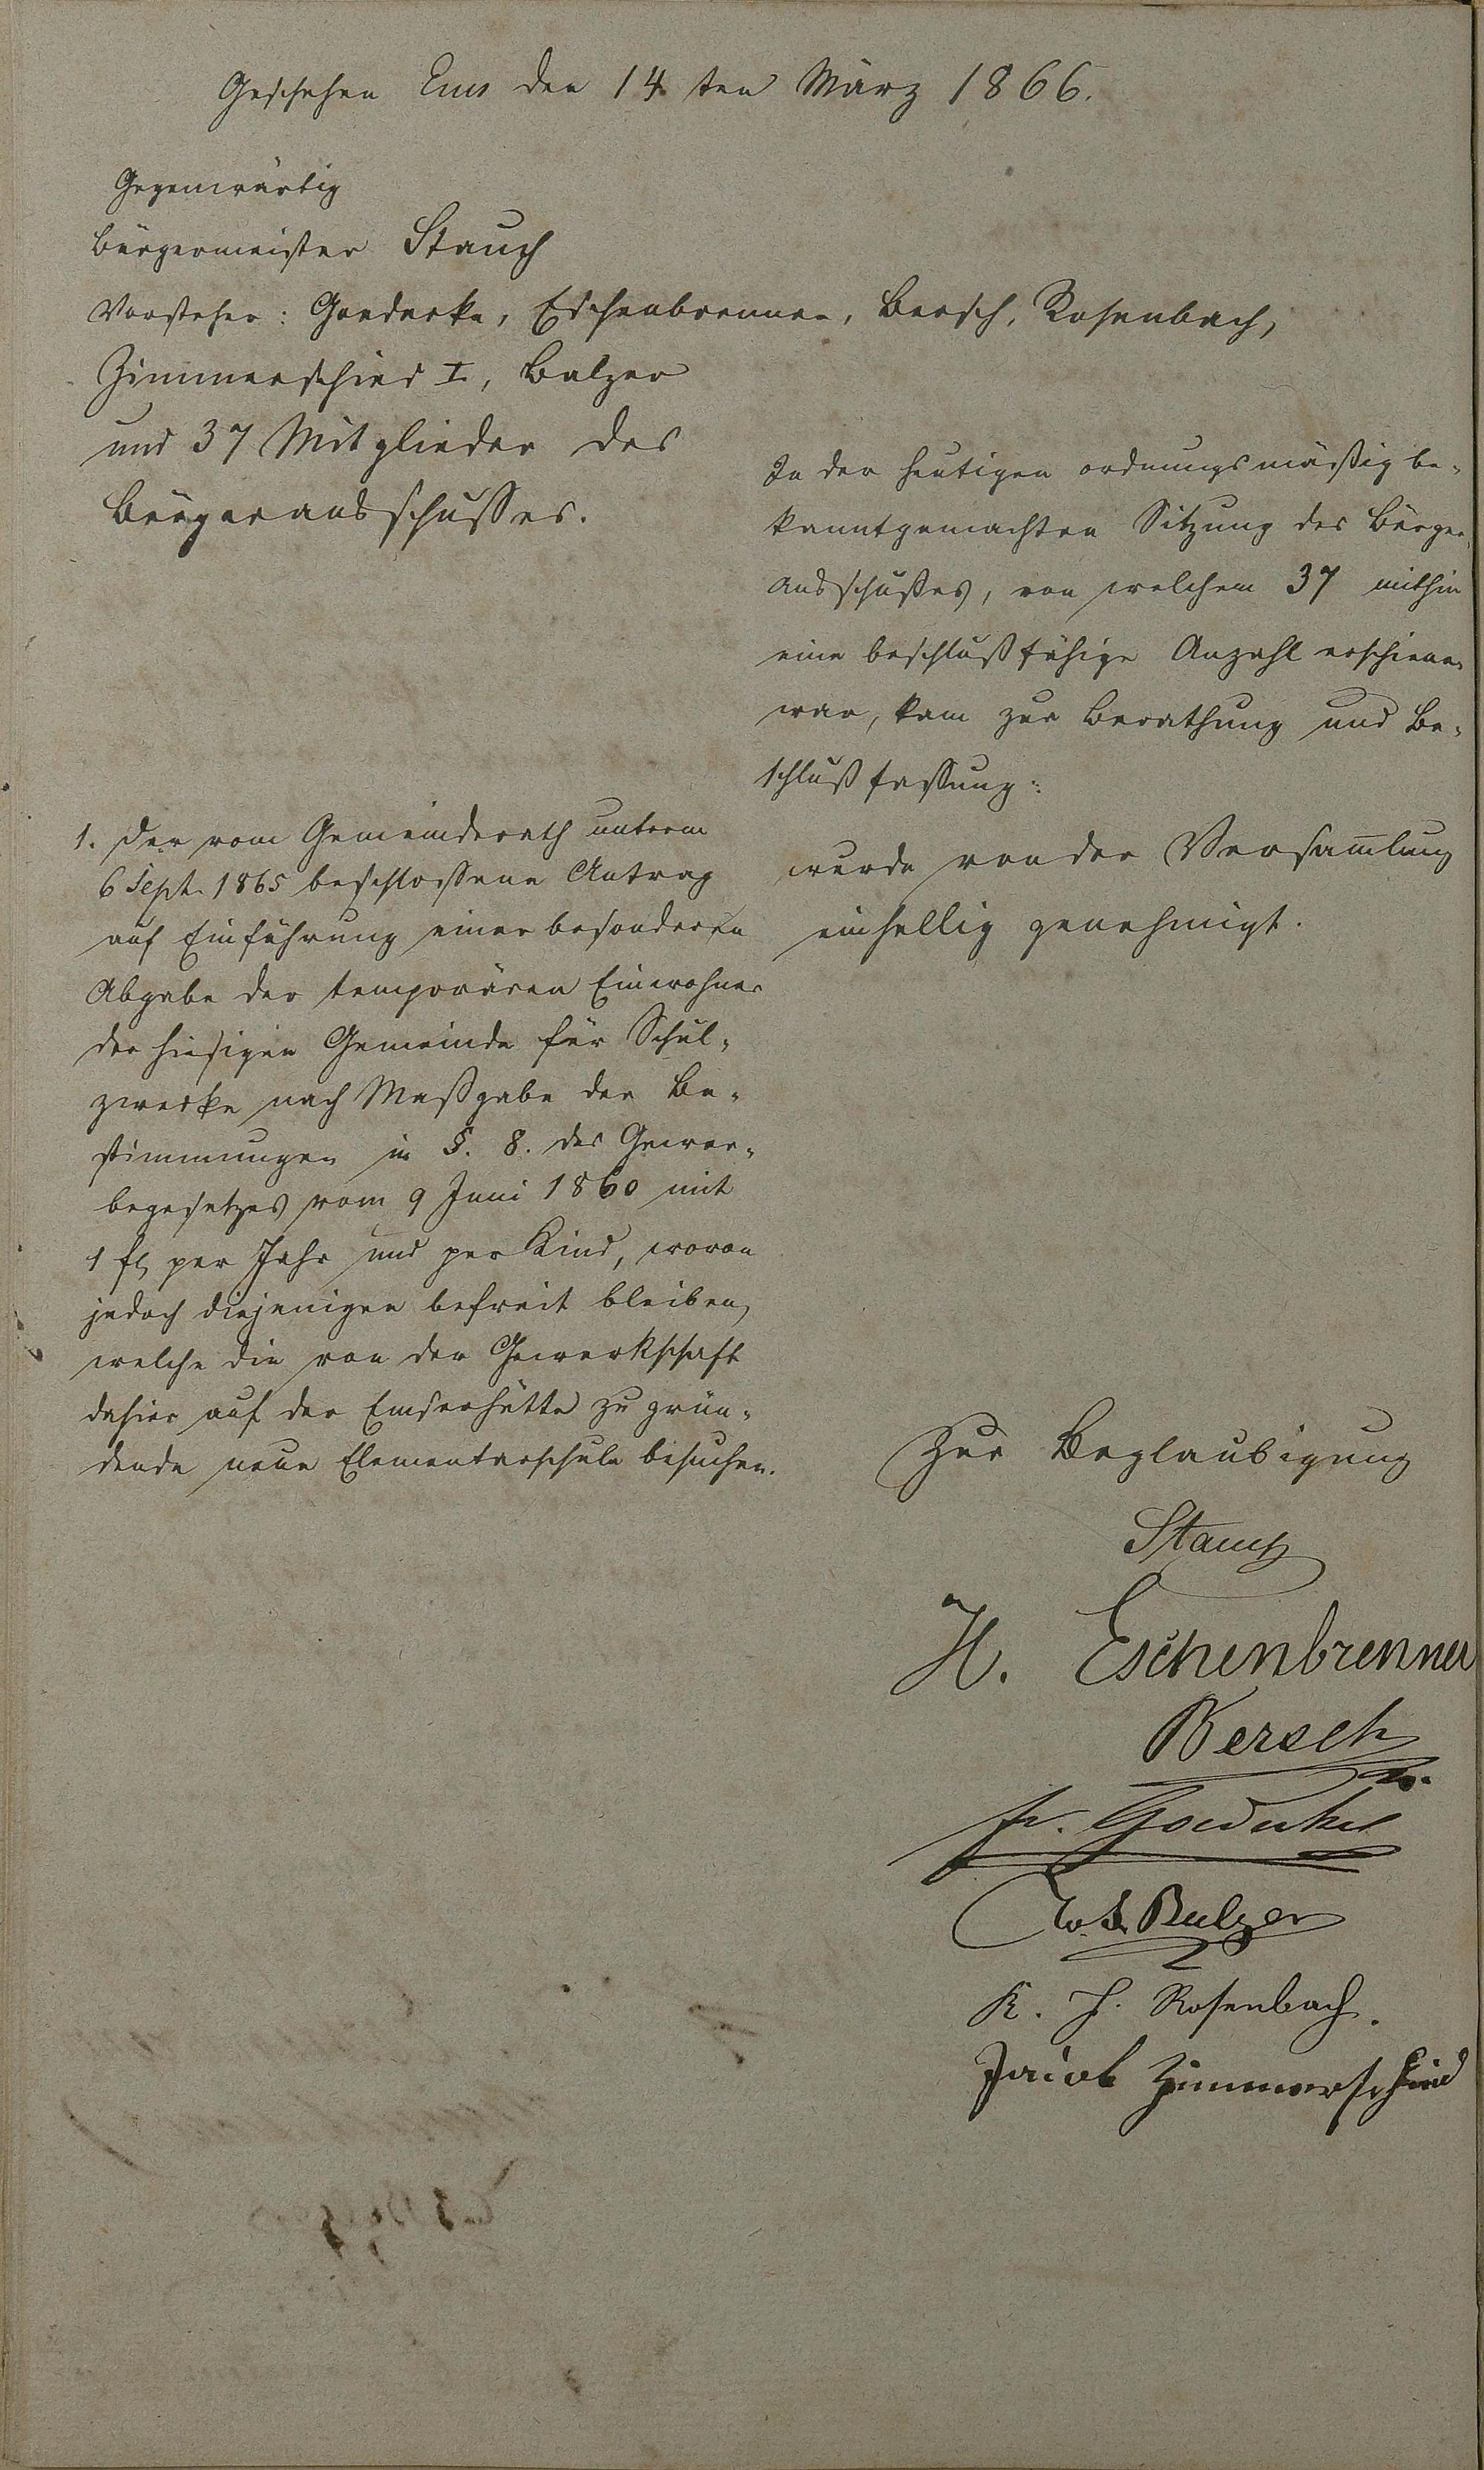 Geschehen Ems den 14ten März 1866.
Gegenwärtig
Bürgermeister Stauch
Vorsteher: Goedecke, Eschenbrenner, Bersch, Rosenbach,
Zimmerschied I, Balzer
und 37 Mitglieder des
Bürgerausschusses.
In der heutigen ordnungsmäßig be-
kanntgemachten Sitzung des Bürger-
ausschußes, von welchem 37 mithin
eine beschlußfähige Anzahl erschienen
war, kam zur Berathung und Be-
schlußfassung:
1. Der vom Gemeinderath unterm
6 Sept. 1865 beschlossene Antrag
auf Einführung einer besonderen
Abgabe der temporären Einwohner
der hiesigen Gemeinde für Schul-
zwecke nach Maßgabe der Be-
stimmungen in §. 8. des Gewer-
begesetzes vom 9 Juni 1860 mit
1 fl per Jahr und per Kind, wovon
jedoch diejenigen befreit bleiben,
welche die von der Gewerkschaft
dahier auf der Emserhütte zu grün-
dende neue Elementarschule besuchen.
wurde von der Versam̅lung
einhellig genehmigt.
Zur Beglaubigung
Stauch
H. Eschenbrenner
Bersch
Fr. Goedecke
W. L. Balzer
K. H. Rosenbach.
Jacob Zimmerschied